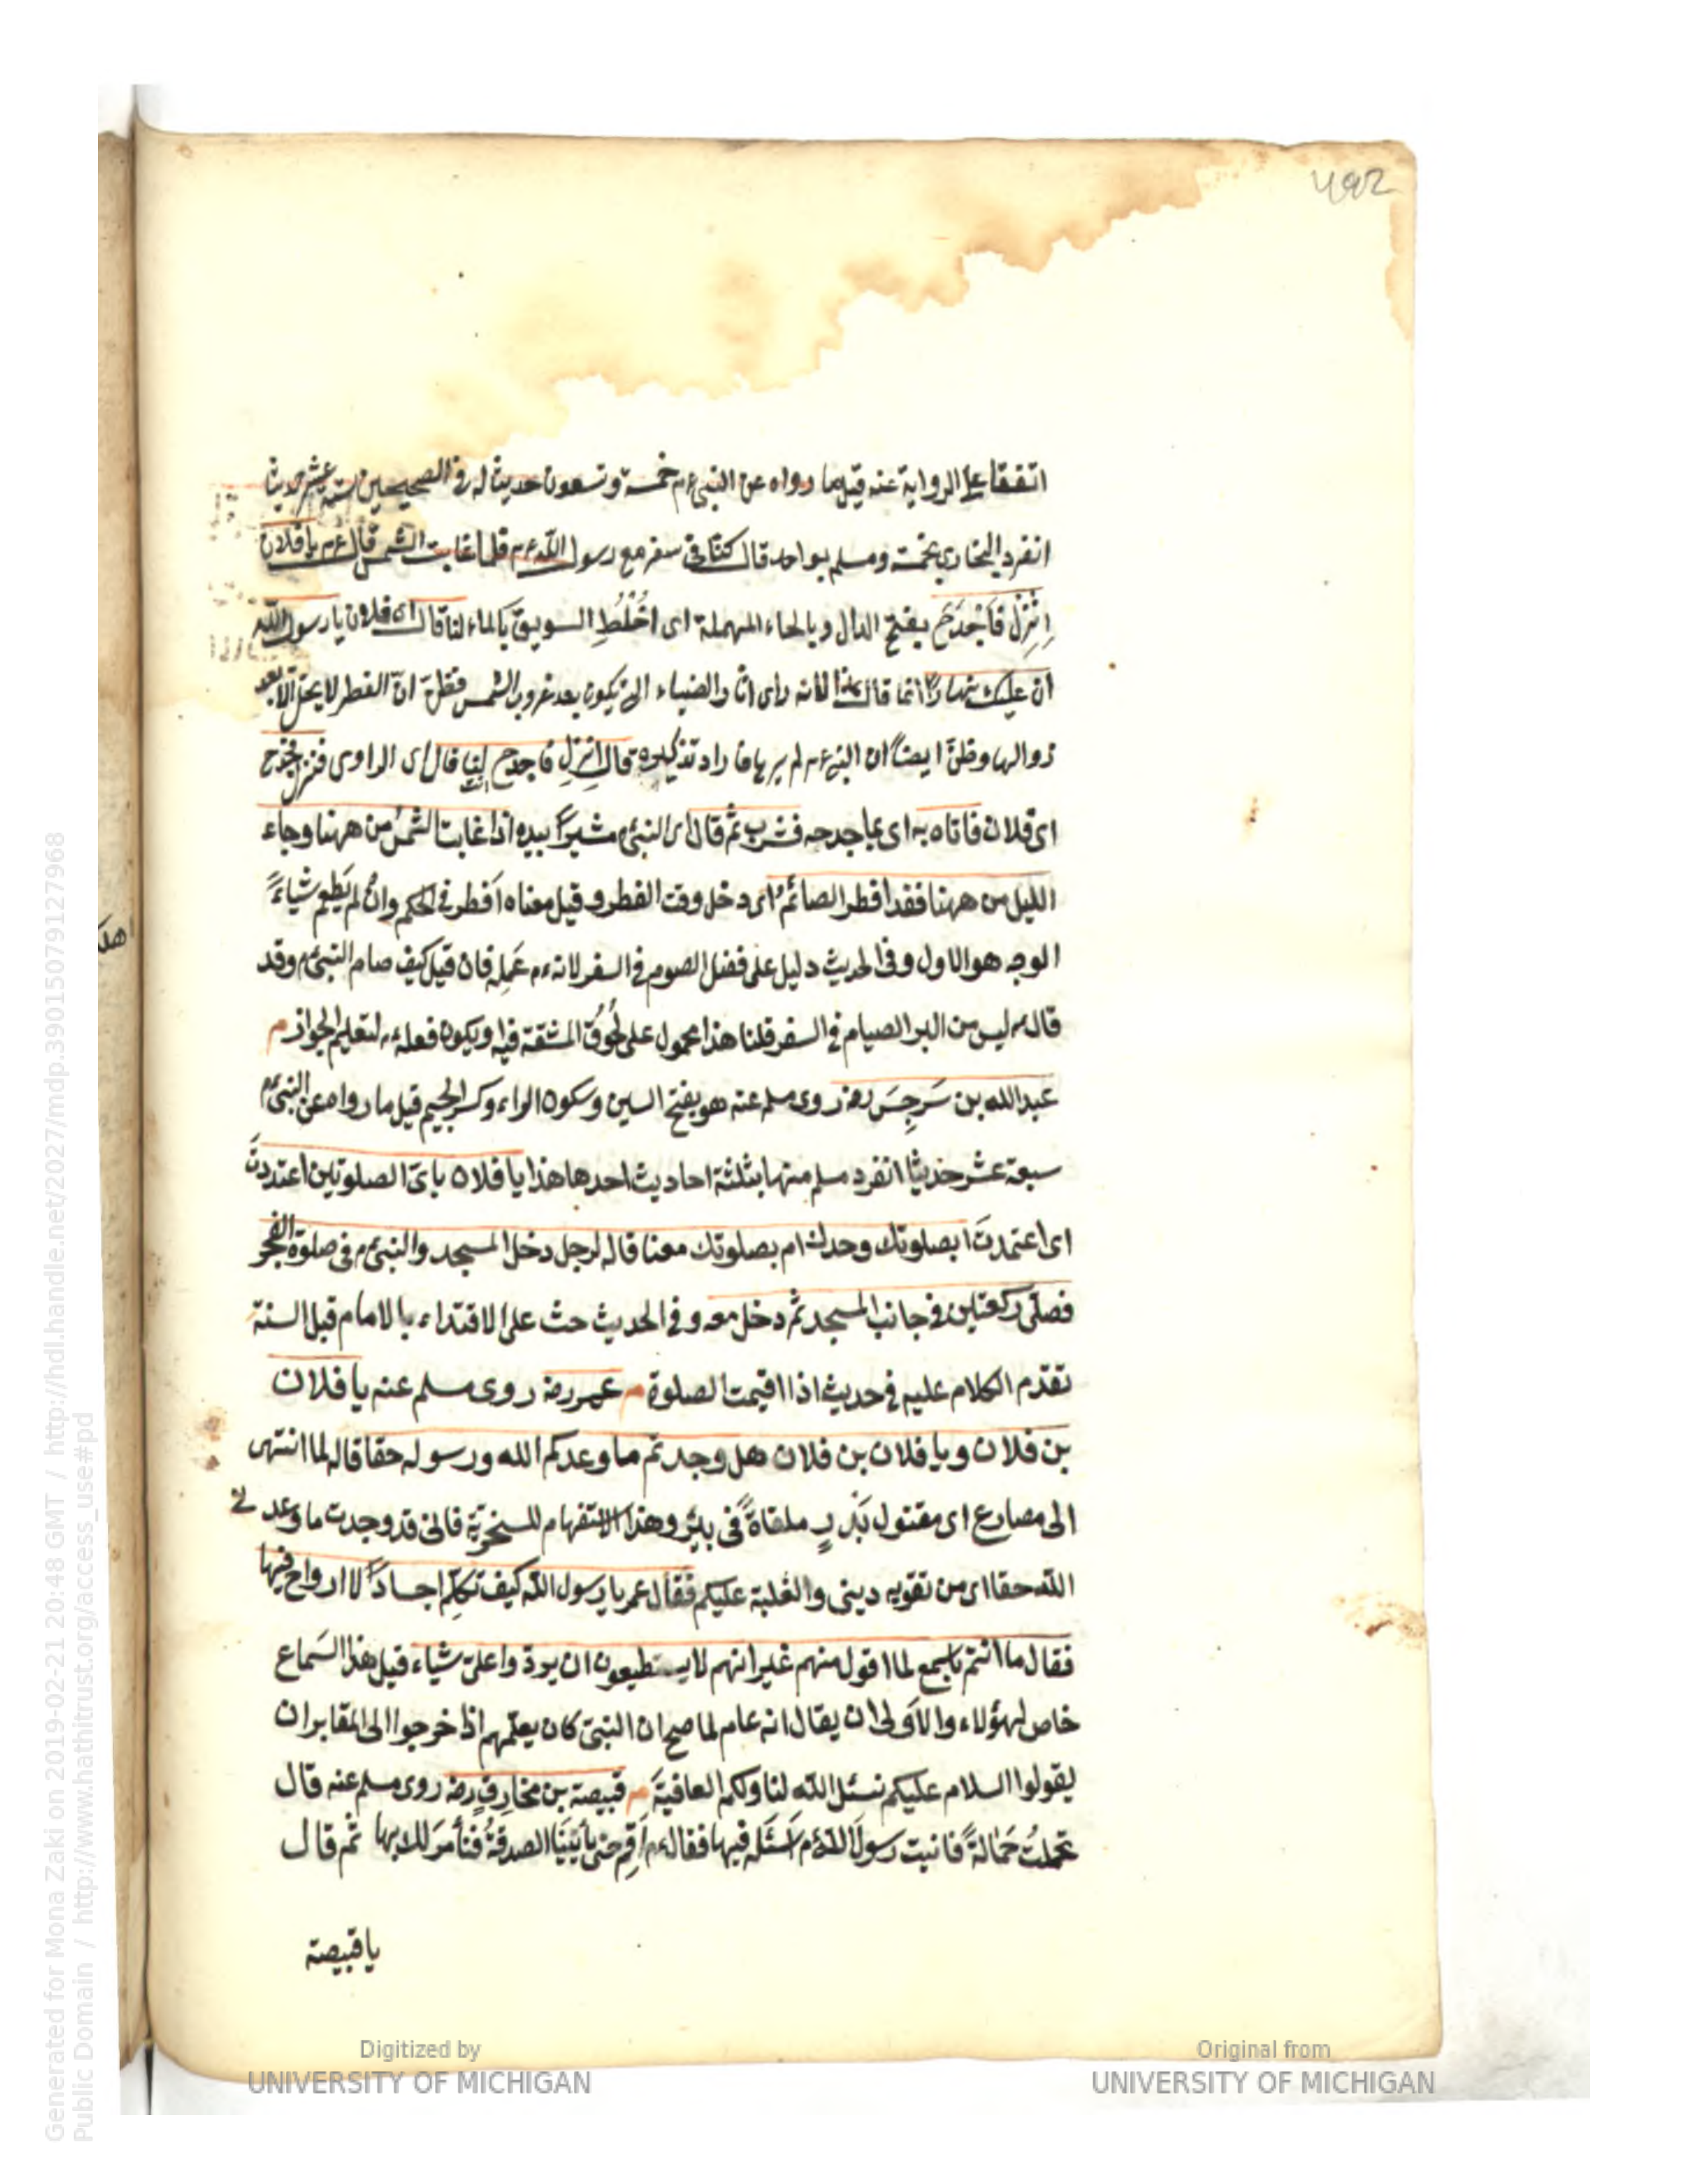 492
اتفقا على الرواية عنه قيل ما رواه عن النبي عم خمسة وتسعون حديثا له في الصحيحين ستة عشر حديثا
انفرد البخارى بخمسة ومسلم بواحد قال كنا فى سفر مع رسول الله عم فلما غابت الشمس قال عم يا فلان
اِنْزِلْ فَاجْدَحْ بفتح الدال وبالحاء المهملة اى اخْلُطِ السويق بالماء لنا قال اى فلان يا رسول الله
ان عليك نهارًا انما قال هذا لانه راى اثار الضياء التى يكون بعد غروب الشمس فظن انّ الفطر لا يحل الا بعد
زوالها وظنّ ايضاً ان النبى عم لم يرها فاراد تذكيره قال انزِلِ فاجدح لنا قال اى الراوى فنزل فجدح
اى فلان فاتاه به اى بما جدحه فشرب ثم قال اى النبى م مشيراً بيده اذا غابت الشمس من ههنا وجاء
الليل من ههنا فقد افطر الصائم اى دخل وقت الفطر وقيل معناه اَفطر فى الحكم وان لم يَطعم شياءً
الوجه هو الاول وفى الحديث دليل على فضل الصوم فى السفر لانه عم عَمِله فان قيل كيف صام النبى م وقد
قال عم ليس من البر الصيام فى السفر قلنا هذا محمول على لُحُوق المشقة فيه ويكون فعله عم لتعليم الجواز م
عبد الله بن سَرجِسَ رضـ روى مسلم عنه هو بفتح السين وسكون الراء وكسر الجيم قيل ما رواه عن النبى م
سبعة عشر حديثا انفرد مسلم منها بثلثة احاديث احدها هذا يا فلان باىّ الصلوتين اعتددتَ
اى اعتمدتَ ابصلوتك وحدك ام بصلوتك معنا قاله لرجل دخل المسجد والنبى م فى صلوة الفجر
فصلى ركعتين فى جانب المسجد ثم دخل معه وفى الحديث حث على الاقتداء بالامام قبل السنة
تقدّم الكلام عليه فى حديث اذا اقيمت الصلوة م عمر رضـ روى مسلم عنه يا فلان
بن فلان ويا فلان بن فلان هل وجدتم ما وعدكم الله ورسوله حقا قاله لما انتهى
الى مصارع اى مقتول بَدْرٍ ملقاةً فى بئر وهذا الاستفهام للسخرية فانى قد وجدت ما وعدنى
الله حقا اى من تقويه دينى والغلبة عليكم فقال عمر يا رسول الله كيف تكلّم اجساداً لا ارواح فيها
فقال ما انتم باسمع لما اقول منهم غير انهم لا يستطيعون ان يردّوا علىّ شياء قيل هذا السَماع
خاص لهؤلاء والاَولى ان يقال انه عام لما صح ان النبىّ كان يعلّمهم اذا خرجوا الى المقابر ان
يقولوا السلام عليكم نسئل الله لنا ولكم العافيةَ م قبيصة بن مخارِقٍ رضـ روى مسلم عنه قال
تحملتُ حَمَالةً فاتيت رسولَ الله م اَسئَله فيها فقال عم اَقِم حتى يأتِيَنَا الصدقةُ فنأمرَ لك بها ثم قال
يا قبيصة
اهل
Generated for Mona Zaki on 2019-02-21 20:48 GMT / http://hdl.handle.net/2027/mdp.39015079127968
Public Domain / http://www.hathitrust.org/access_use#pd
Digitized by
UNIVERSITY OF MICHIGAN
Original from
UNIVERSITY OF MICHIGAN